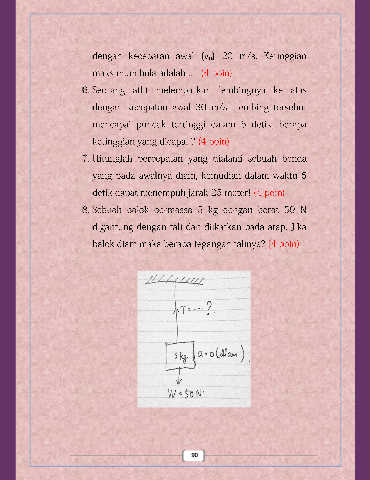 dengan kecepatan awal (v₀) 20 m/s. Ketinggian
maksimum bola adalah ... (4 poin)
6. Seorang atlit melemparkan lembingnya ke atas
dengan kecepatan awal 30 m/s. Lembing tersebut
mencapai puncak tertinggi dalam 5 detik. Berapa
ketinggian yang dicapai? (4 poin)
7. Hitunglah percepatan yang dialami sebuah benda
yang pada awalnya diam, kemudian dalam waktu 5
detik dapat menempuh jarak 25 meter! (4 poin)
8. Sebuah balok bermassa 5 kg dengan berat 50 N
digantung dengan tali dan diikatkan pada atap. Jika
balok diam maka berapa tegangan talinya? (4 poin)
T = ... ?
5 kg a = 0 (diam)
W = 50 N
90